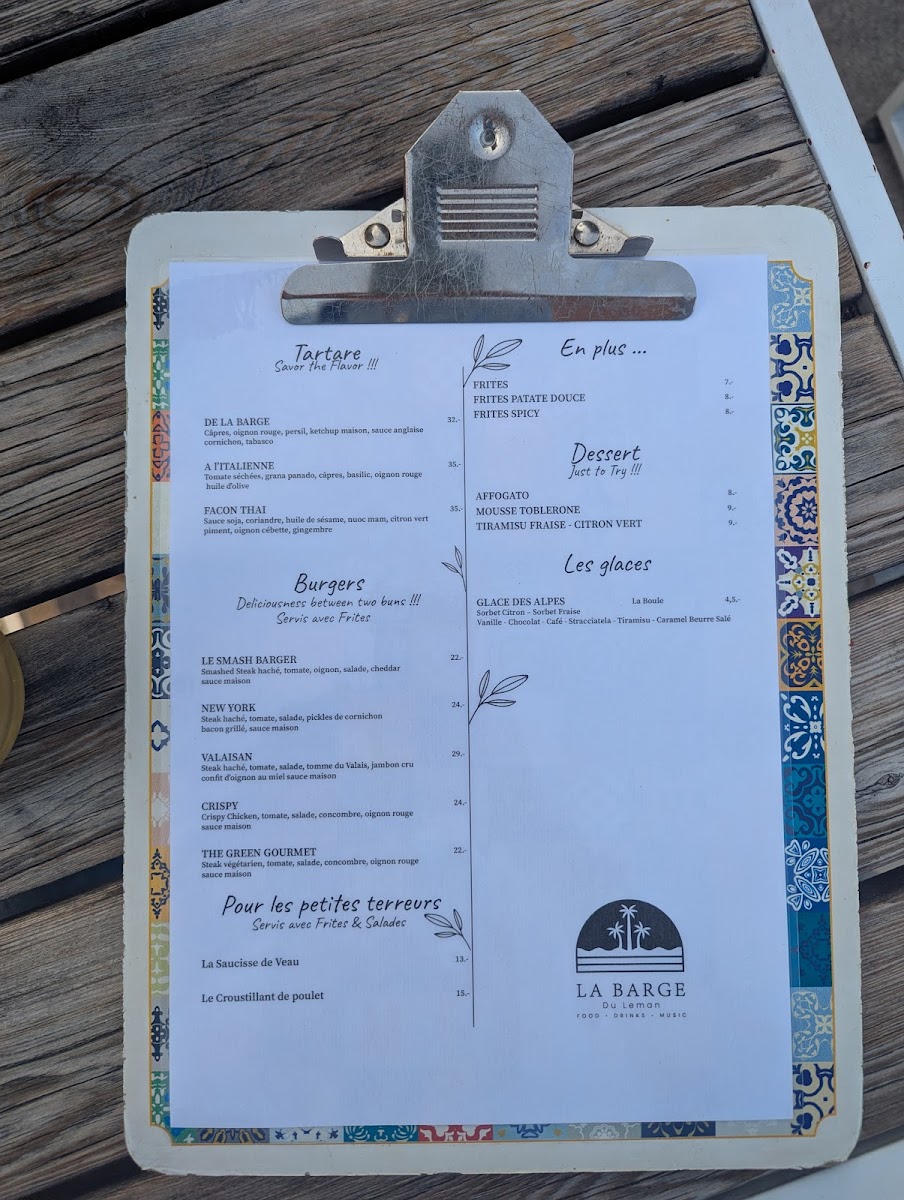 Tartare
Savor the Flavor !!!
DE LA BARGE 32.-
Câpres, oignon rouge, persil, ketchup maison, sauce anglaise
cornichon, tabasco
A l'ITALIENNE 35.-
Tomate séchées, grana panado, câpres, basilic, oignon rouge
huile d'olive
FACON THAI 35.-
Sauce soja, coriandre, huile de sésame, nuoc mam, citron vert
piment, oignon cébette, gingembre
Burgers
Deliciousness between two buns !!!
Servis avec Frites
LE SMASH BARGER 22.-
Smashed Steak haché, tomate, oignon, salade, cheddar
sauce maison
NEW YORK 24.-
Steak haché, tomate, salade, pickles de cornichon
bacon grillé, sauce maison
VALAISAN 29.-
Steak haché, tomate, salade, tomme du Valais, jambon cru
confit d'oignon au miel sauce maison
CRISPY 24.-
Crispy Chicken, tomate, salade, concombre, oignon rouge
sauce maison
THE GREEN GOURMET 22.-
Steak végétarien, tomate, salade, concombre, oignon rouge
sauce maison
Pour les petites terreurs
Servis avec Frites & Salades
La Saucisse de Veau 13.-
Le Croustillant de poulet 15.-
En plus ...
FRITES 7.-
FRITES PATATE DOUCE 8.-
FRITES SPICY 8.-
Dessert
Just to Try !!!
AFFOGATO 8.-
MOUSSE TOBLERONE 9.-
TIRAMISU FRAISE - CITRON VERT 9.-
Les glaces
GLACE DES ALPES La Boule 4,5.-
Sorbet Citron - Sorbet Fraise
Vanille - Chocolat - Café - Stracciatela - Tiramisu - Caramel Beurre Salé
LA BARGE
Du Leman
FOOD - DRINKS - MUSIC